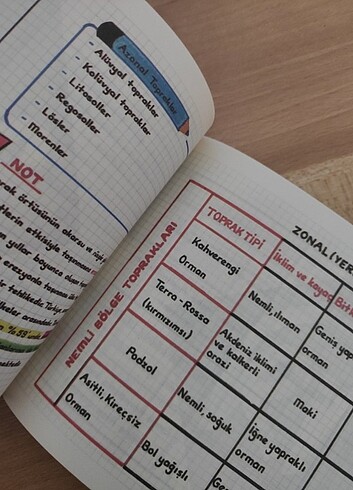 Azonal Topraklar
- Alüvyal topraklar
- Kolüvyal topraklar
- Litosoller
- Regosoller
- Lösler
- Morenler
NOT
örtüsünün akarsu ve rüzgar
etkisiyle taşınması
yıllar boyunca
erozyonla taşınma
bir tehlikedir. Türkiye
NEMLİ BÖLGE TOPRAKLARI
ZONAL (YER
TOPRAK TİPİ
İklim ve kayaç
Bit
Kahverengi
Orman
Nemli, ılıman
Geniş yap
orman
Terra-Rossa
(kırmızımsı)
Akdeniz iklimi
ve kalkerli
arazi
Maki
Podzol
Nemli, soğuk
İğne yapraklı
orman
Asitli, Kireçsiz
Orman
Bol yağışlı
Ge